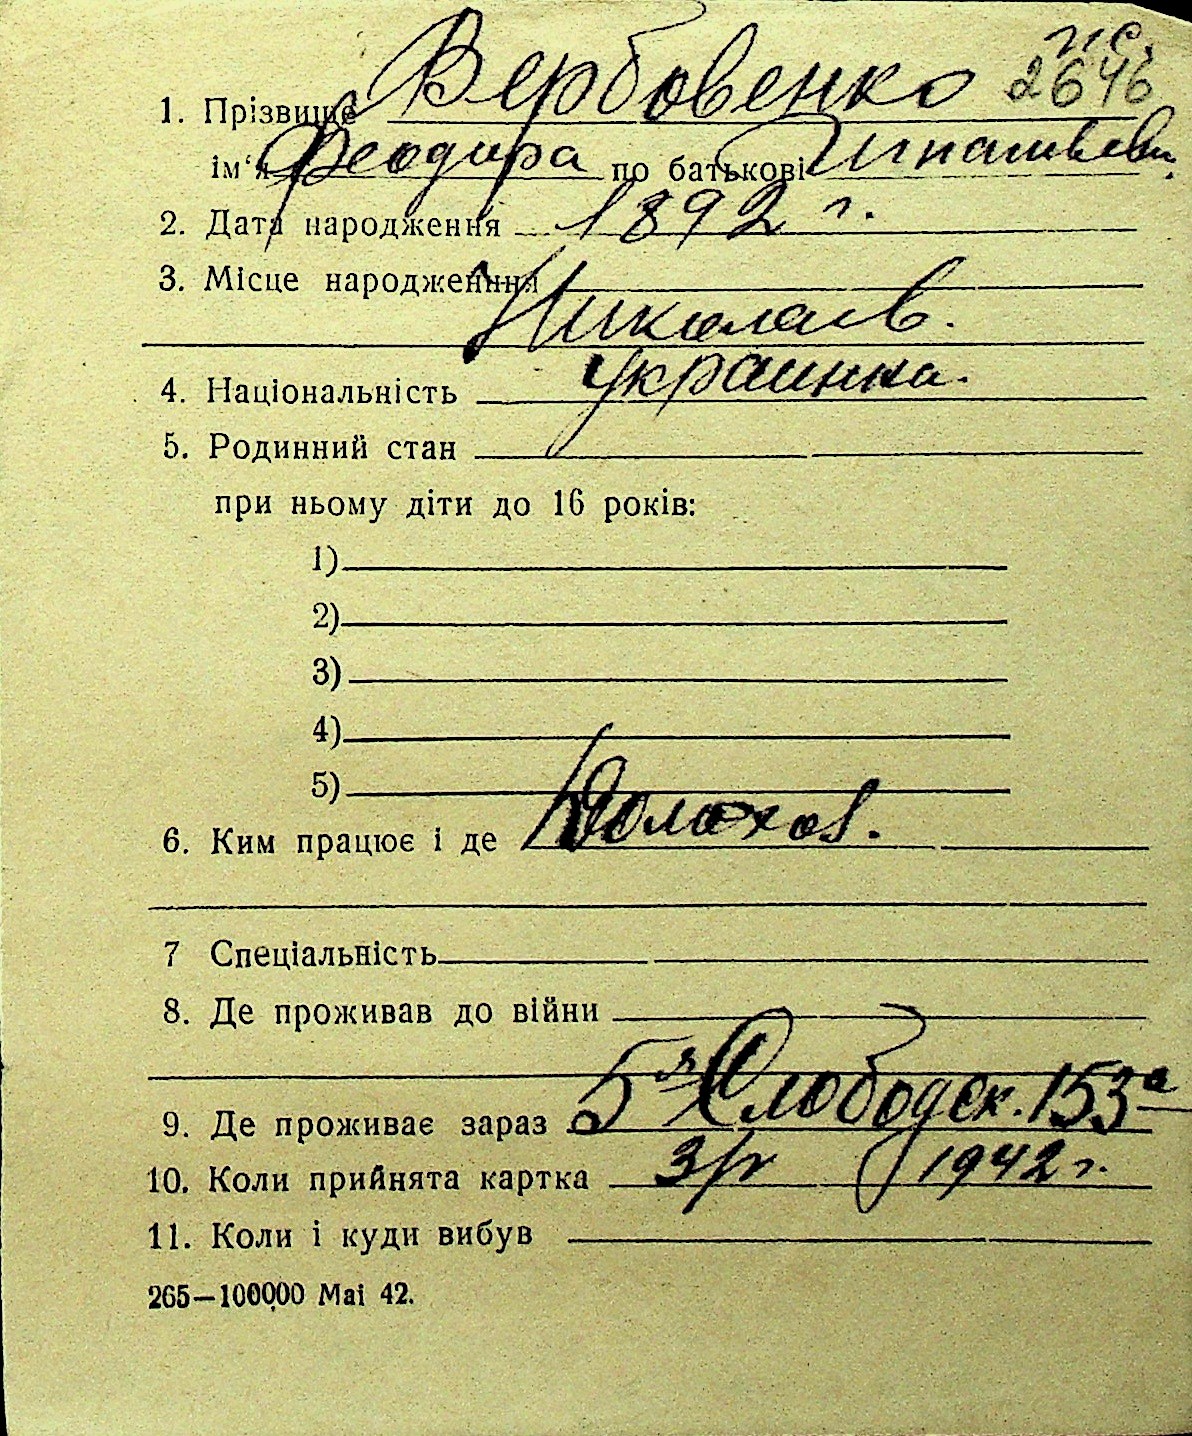 2646
1. Прізвище Вербовенко
ім'я Феодора по батькові Игнатьевн.
2. Дата народження 1892 г.
3. Місце народження
Николаев.
4. Національність украинка.
5. Родинний стан
при ньому діти до 16 років:
1)
2)
3)
4)
5)
6. Ким працює і де Домохоз.
7 Спеціальність
8. Де проживав до війни
9. Де проживає зараз 5я Слободск. 153а
10. Коли прийнята картка 1942 г.
11. Коли і куди вибув
265—100000 Mai 42.